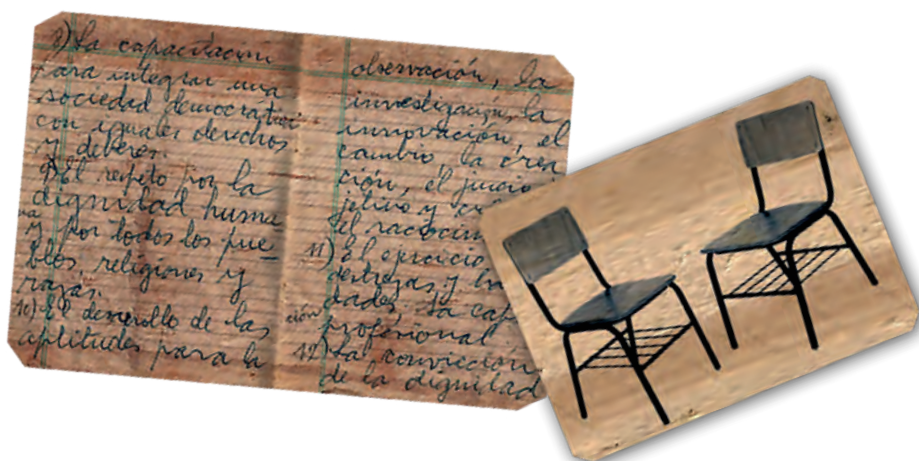 8) La capacitación
para integrar una
sociedad democrática
con iguales derechos
y deberes.
9) El respeto por la
dignidad huma
na y por todos los pue-
blos, religiones y
razas.
10) El desarrollo de las
aptitudes para la
observación, la
investigación, la
innovación, el
cambio, la crea
ción, el juicio
jetivo y
el
11) El ejercicio
destrezas y
dades. La
ción profesional
12) La convicción
de la dignidad